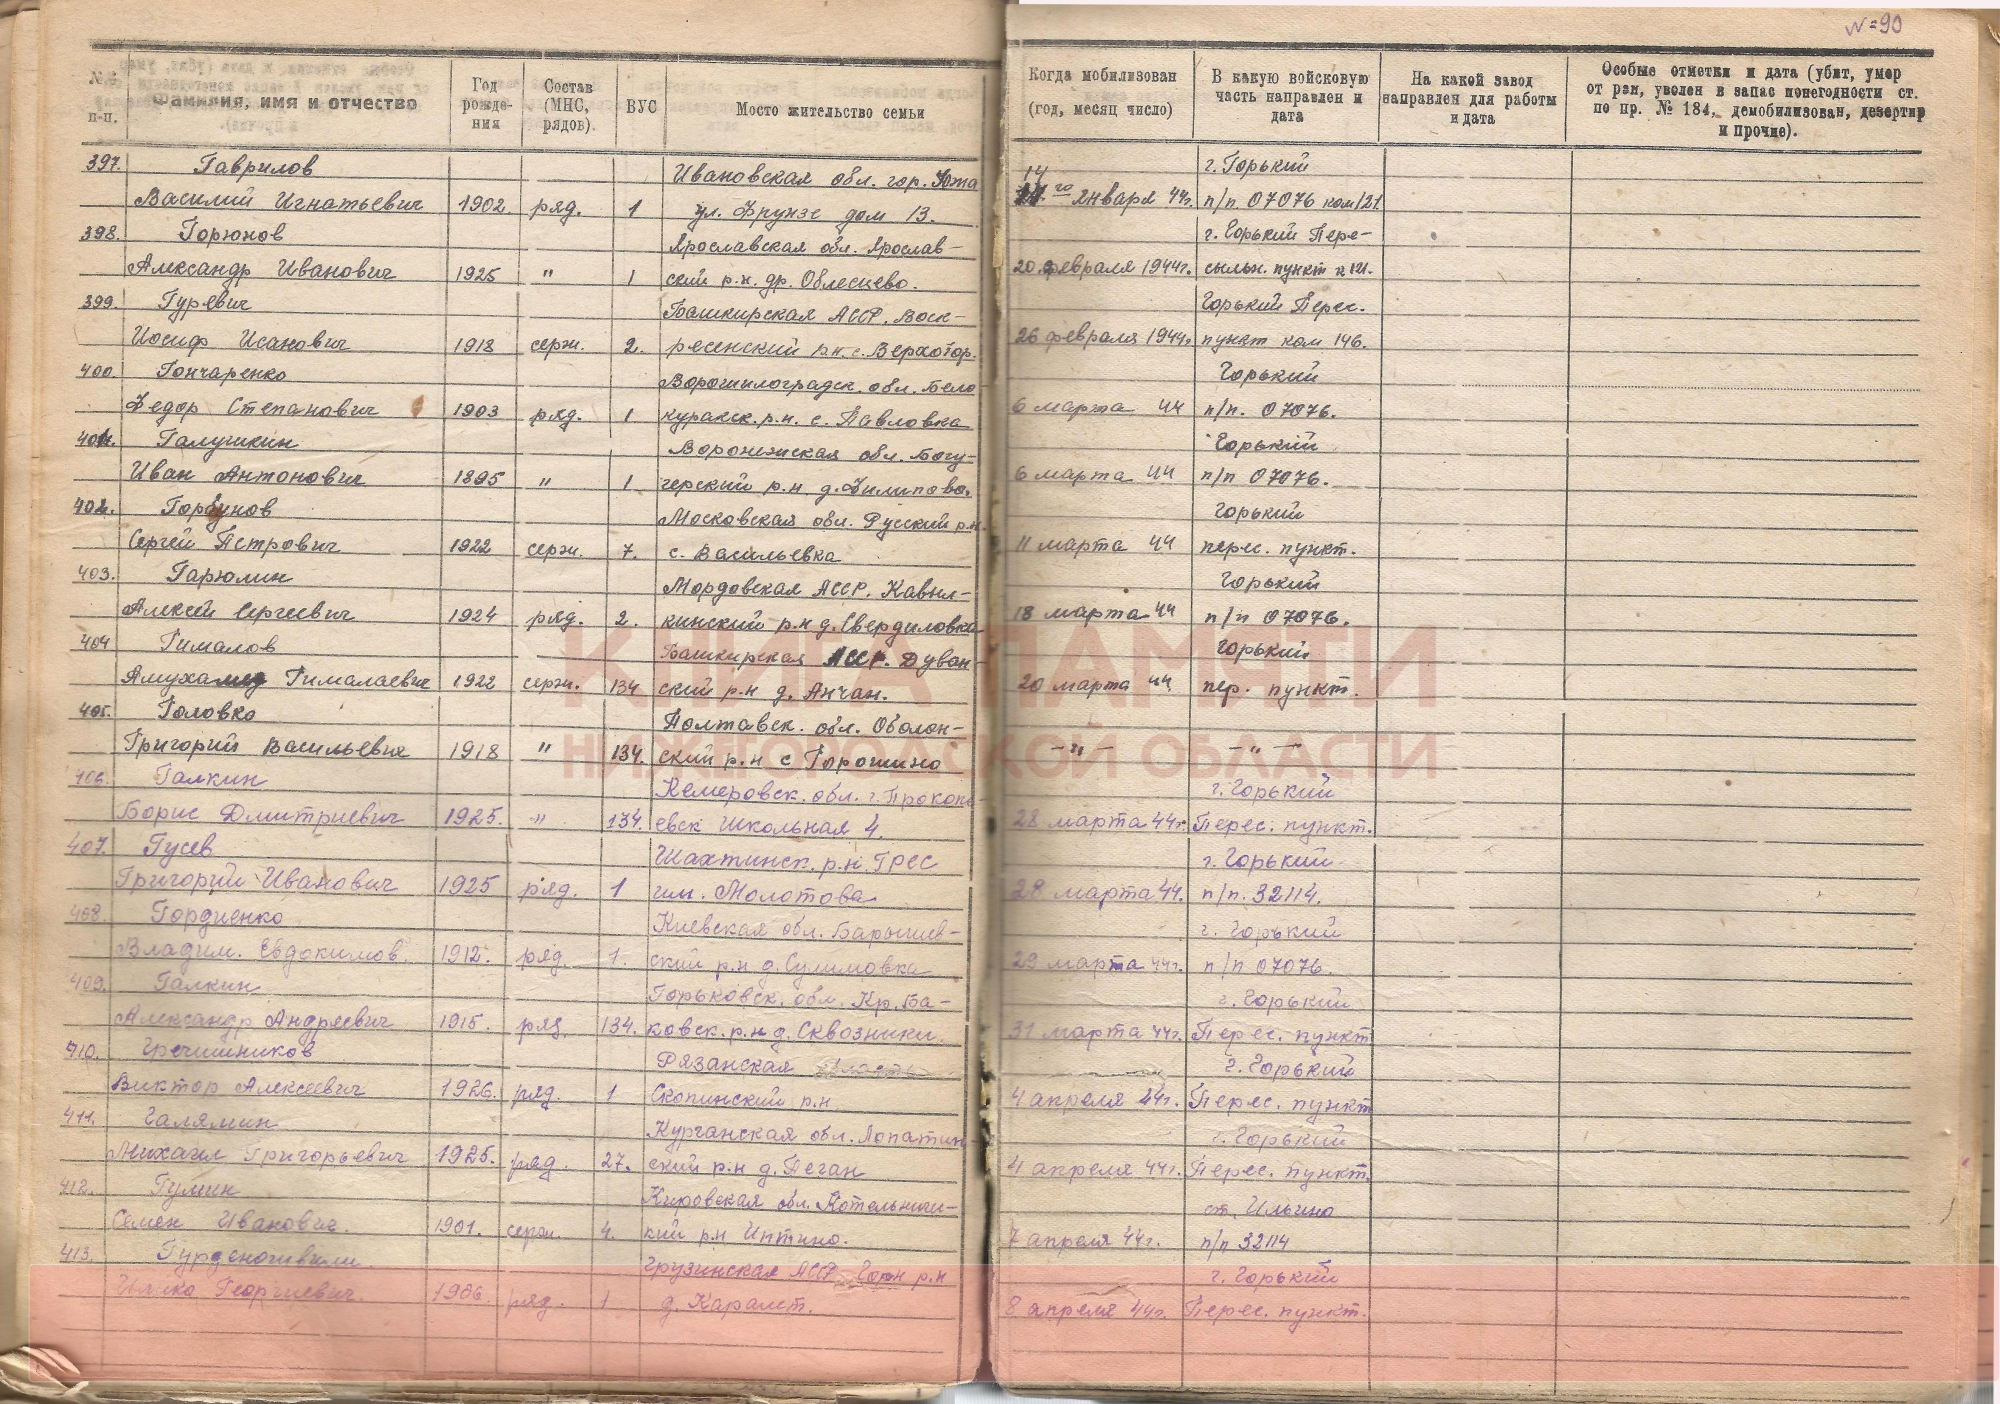 №=90
№№ п-п.
Фамилия, имя и отчество
Год рожде-ния
Состав (МНС, рядов).
ВУС
Мосто жительство семьи
Когда мобилизован (год, месяц число)
В какую войсковую часть направлен и дата
На какой завод направлен для работы и дата
Особые отметки и дата (убит, умер от ран, уволен в запас понегодности ст. по пр. № 184, демобилизован, дезертир и прочие).
397. Гаврилов Ивановская обл. гор. Южа 14 г. Горький
Василий Игнатьевич 1902. ряд. 1 ул. Фрунзе дом 13. го января 44г. п/п. 07076 ком/121.
398. Горюнов Ярославская обл. Ярослав- г. Горький Пере-
Александр Иванович 1925 " 1 ский р.н. др. Облесцево. 20 февраля 1944г. сыльн. пункт к 121.
399. Гуревич Башкирская АССР. Воск- Горький Перес.
Иосиф Исакович 1918 серж. 2. ресенский р.н. с. Верхотор. 26 февраля 1944г. пункт ком 146.
400. Гончаренко Ворошилоградск. обл. Бело- Горький
Федор Степанович 1903 ряд. 1 куракск. р.н. с. Павловка 6 марта 44 п/п. 07076.
401. Галушкин Воронежская обл. Богу- Горький
Иван Антонович 1895 " 1 черский р.н д. Филипово. 6 марта 44 п/п 07076.
402. Горбунов Московская обл. Русский р.н. Горький
Сергей Петрович 1922 серж. 7. с. Васильевка 11 марта 44 перес. пункт.
403. Гарюлин Мордовская АССР. Кавыл- Горький
Алексей Сергеевич 1924 ряд. 2. кинский р.н д. Свердиловка 18 марта 44 п/п 07076.
404 Гималов Башкирская АССР. Дуван- Горький
Амухамед Гималаевич 1922 серж. 134 ский р.н д. Анчан. 20 марта 44 пер. пункт.
405. Головко Полтавск. обл. Оболон-
Григорий Васильевич 1918 " 134. ский р.н с Горошино -"- -"-
406. Галкин Кемеровск. обл. г. Прокопь- г. Горький
Борис Дмитриевич 1925. -"- 134. евск Школьная 4. 28 марта 44г. Перес. пункт.
407. Гусев Шахтинск. р.н. ГРЕС г. Горький
Григорий Иванович 1925 ряд. 1 им. Молотова 28 марта 44. п/п. 32114.
408. Гордиенко Киевская обл. Барышев- г. Горький
Владим. Евдокимов. 1912. ряд. 1. ский р.н д. Сулимовка 29 марта 44г. п/п 07076.
409. Галкин Горьковск. обл. Кр. Ба- г. Горький
Александр Андреевич 1915. ряд. 134. ковск. р.н д. Сквозники. 31 марта 44г. Перес. пункт
410. Гречишников Рязанская область г. Горький
Виктор Алексеевич 1926. ряд. 1 Скопинский р.н 4 апреля 44г. Перес. пункт
411. Галямин Курганская обл. Лопатин г. Горький
Михаил Григорьевич 1925. ряд. 27. ский р.н д. Пеган 4 апреля 44г. Перес. пункт.
412. Гулин Кировская обл. Котельнич- ст. Ильино
Семен Иванович. 1901. серж. 4. кий р.н Интино. 7 апреля 44г. п/п 32114
413. Грузинская АССР Горн р.н г. Горький
Георгиевич. ряд. 1 д. Каралет. 8 апреля 44г. Перес. пункт.
КНИГА ПАМЯТИ
НИЖЕГОРОДСКОЙ ОБЛАСТИ